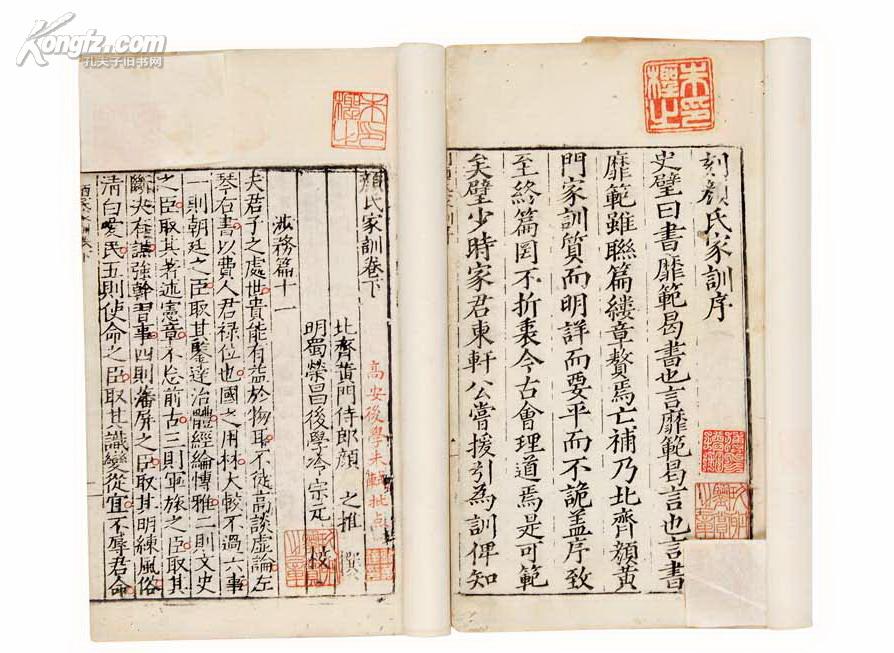 Kongfz.com
孔夫子旧书网
刻顏氏家訓序
史璧曰書靡範曷書也言靡範曷言也言書
靡範雖聯篇縷章贅焉亡補乃北齊顏黃
門家訓質而明詳而要平而不詭盖序致
至終篇罔不折衷今古會理道焉是可範
矣璧少時家君東軒公嘗援引為訓俾知
朱印
樫之
顏氏家訓卷下
高安後學朱軾批点
北齊黃門侍郎顏之推 撰
明蜀榮昌後學冷宗元 校
涉務篇十一
夫君子之處世貴能有益於物耳不徒高談虛論左
琴右書以費人君祿位也國之用材大較不過六事
一則朝廷之臣取其鑒達治體經綸博雅二則文史
之臣取其著述憲章不忘前古三則軍旅之臣取其
斷決有謀強幹習事四則藩屏之臣取其明練風俗
清白愛民五則使命之臣取其識變從宜不辱君命